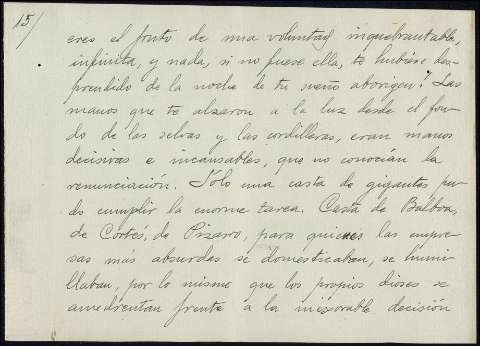 15/
eres el fruto de una voluntad inquebrantable,
infinita, y nada, si no fuese ella, te hubiese des-
prendido de la noche de tu sueño aborigen! Las
manos que te alzaron a la luz desde el fon-
do de las selvas y las cordilleras, eran manos
decisivas e incansables, que no conocían la
renunciación. Sólo una casta de gigantes pu-
do cumplir la enorme tarea. Casta de Balboa,
de Cortés, de Pizarro, para quienes las empre-
sas más absurdas se domesticaban, se humi-
llaban, por lo mismo que los propios dioses se
amedrentan frente a la inexorable decisión